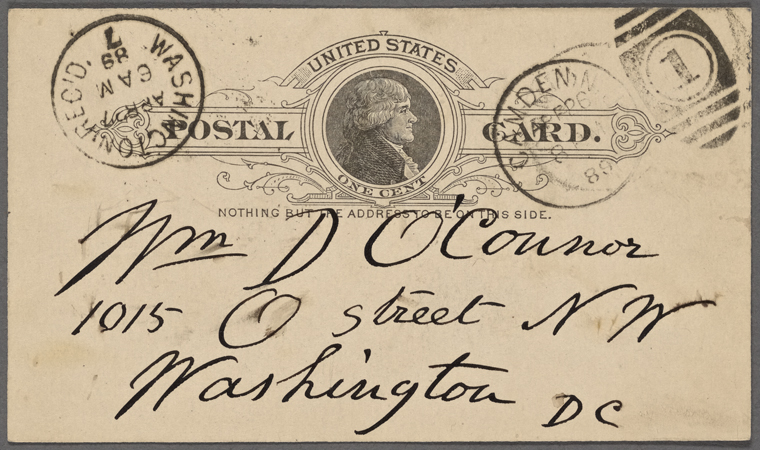 UNITED STATES
POSTAL CARD.
ONE CENT
NOTHING BUT THE ADDRESS TO BE ON THIS SIDE.
WASHINGTON REC'D.
7
89
6 AM
CAMDEN N
26
89
1
Wm D O'Connor
1015 O street N W
Washington D C